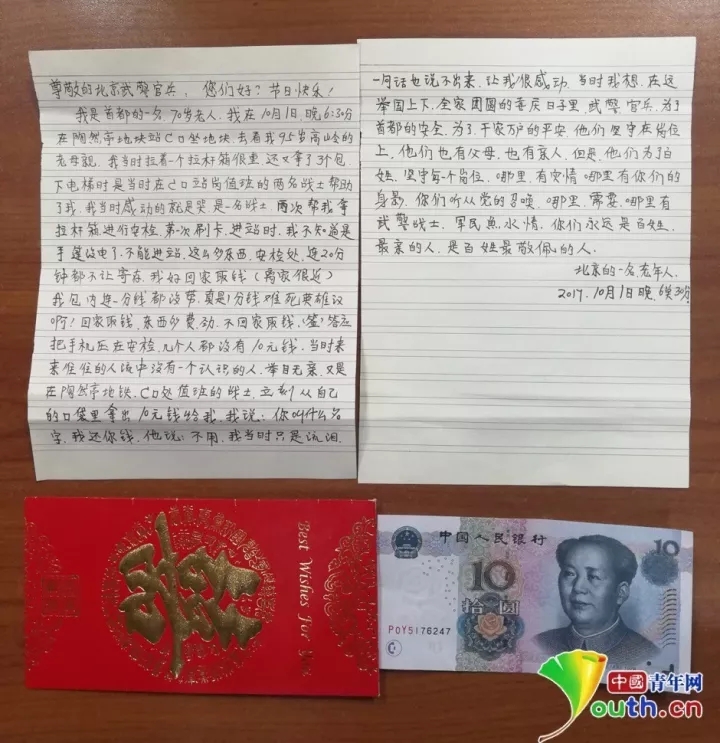 尊敬的北京武警官兵：您们好？节日快乐！
我是首都的一名70岁老人。我在10月1日晚6:30分
在陶然亭地铁站C口坐地铁，去看我95岁高龄的
老母亲，我当时拉着一个拉杆箱很重，还又拿了3个包
下电梯时是当时在C口站岗值班的两名战士帮助
了我，我当时感动的就是哭是一名战士，两次帮我拿
拉杆箱进行安检，第次刷卡，进站时，我不知道是
手
没电了，不能进站，这么多东西，安检处，连20分
钟都不让寄存，我好回家取钱（离家很近）
我包内连一分钱都没带，真是1分钱难死英雄汉
啊！回家取钱，东西多费劲，不回家取钱，(
)答应
把手机压在安检，几个人都没有10元钱，当时来
来往往的人流中没有一个认识的人，举目无亲，又是
在陶然亭地铁，C口处值班的战士，立刻从自己
的口袋里拿出10元钱给我，我说：你叫什么名
字，我还你钱，他说：不用，我当时只是流泪，
一句话也说不出来，让我很感动，当时我想，在这
举国上下，全家团圆的喜庆日子里，武警官兵，为了
首都的安全，为了千家万户的平安，他们坚守在岗位
上，他们也有父母，也有亲人，但是，他们为了百
姓，坚守每个岗位，哪里，有灾情，哪里有你们的
身影，你们听从党的召唤，哪里，需要，哪里有
武警战士，军民鱼水情，你们永远是百姓，
最亲的人，是百姓最敬佩的人。
北京的一名老年人
2017.10月1日晚.6点30分
Best Wishes For You
中国人民银行
10
10
拾圆
P0Y5176247
中国青年网
Youth.cn